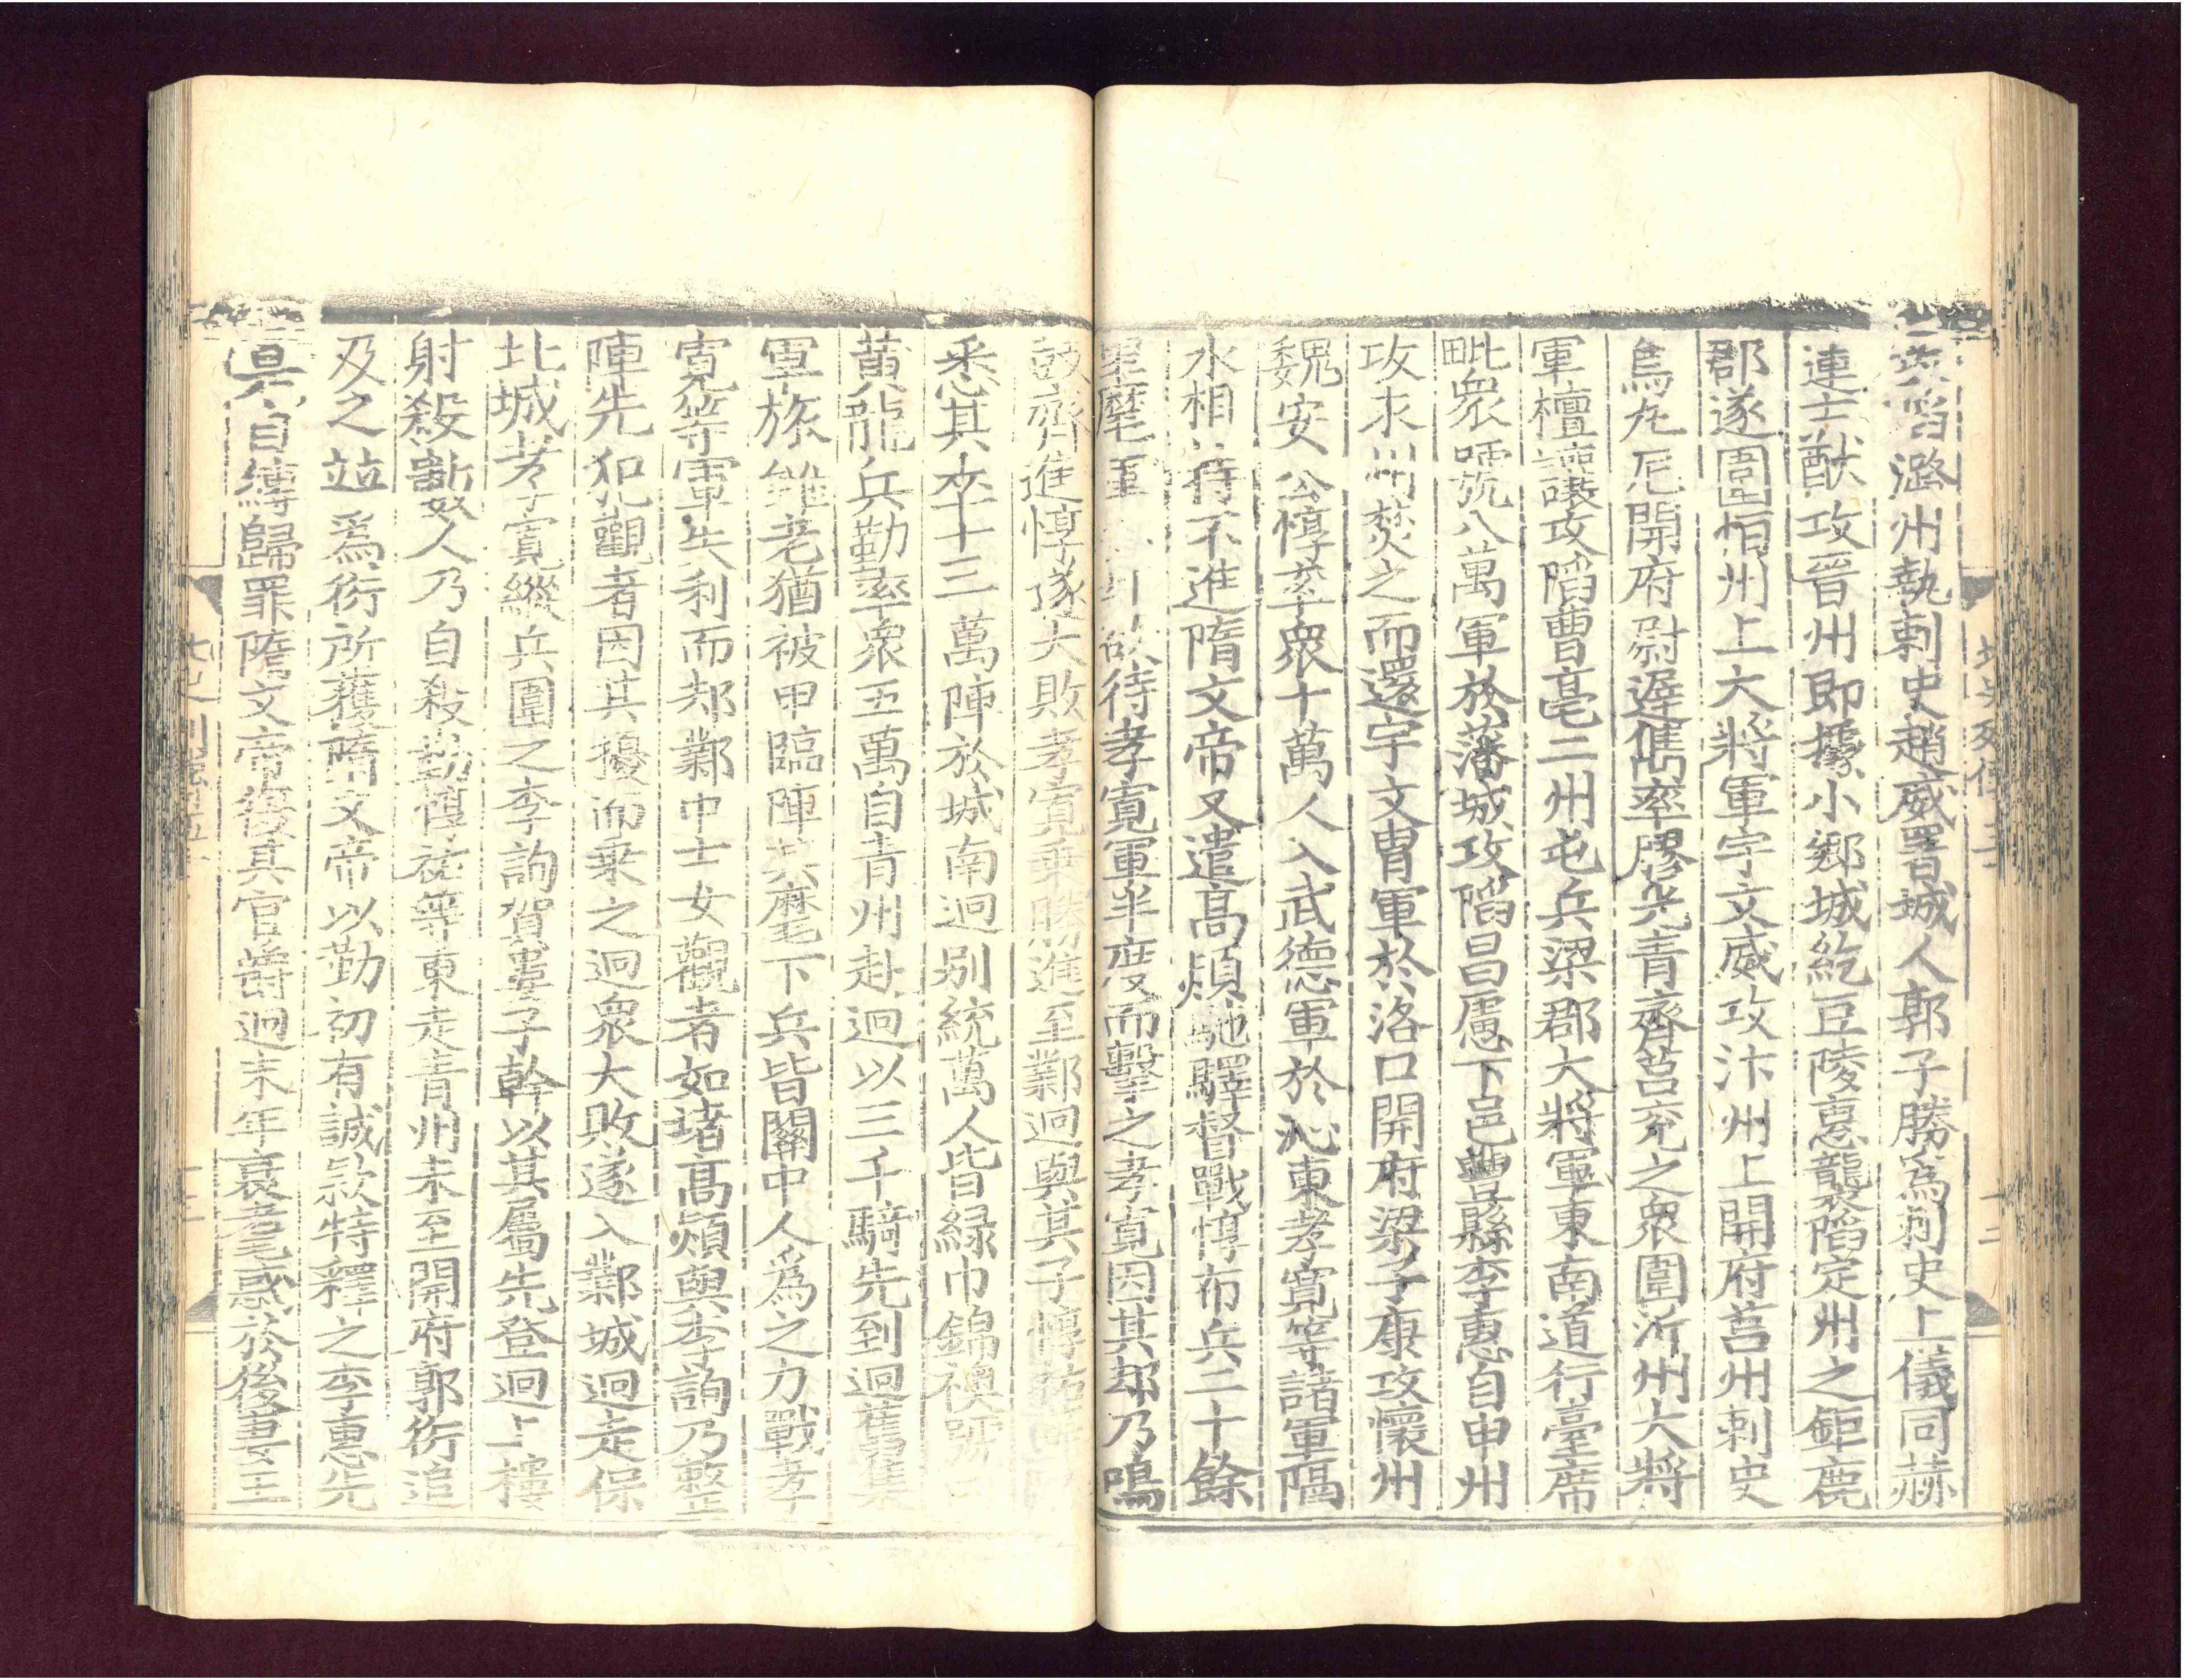 潞州執刺史趙威署城人郭子勝為刺史上儀同赫
連士猷攻晉州即據小鄉城紇豆陵惠襲陷定州之鉅鹿
郡遂圍恒州上大將軍宇文威攻汴州上開府莒州刺史
烏丸尼開府尉遲儁率膠光青齊莒兖之衆圍沂州大將
軍檀讓攻陷曹亳二州屯兵梁郡大將軍東南道行臺席
毗衆號八萬軍於藩城攻陷昌慮下邑豐縣李惠自申州
攻永州焚之而還宇文胄軍於洛口開府梁子康攻懷州
魏安公惇率衆十萬人入武德軍於沁東孝寬等諸軍隔
水相持不進隋文帝又遣高熲馳驛督戰惇布兵二十餘
里麾軍欲待孝寬軍半度而擊之孝寬因其却乃鳴
鼓齊進惇遂大敗孝寬乗勝進至鄴迥與其子惇
悉其卒十三萬陣於城南迥别統萬人皆緑巾錦襖號
黄龍兵勤率衆五萬自青州赴迥以三千騎先到迥舊集
軍旅雖老猶被甲臨陣其麾下兵皆關中人爲之力戰孝
寛等軍失利而却鄴中士女觀者如堵高熲與李詢乃整
陣先犯觀者因其擾而乗之迥衆大敗遂入鄴城迥走保
北城孝寛縱兵圍之李詢賀婁子幹以其屬先登迥上樓
射殺數人乃自殺勤惇祐等東走青州未至開府郭衍追
及之並爲衍所獲隋文帝以勤初有誠款特釋之李惠先
是自縛歸罪隋文帝復其官爵迥末年衰耄惑於後妻王
北史列傳五十
十二